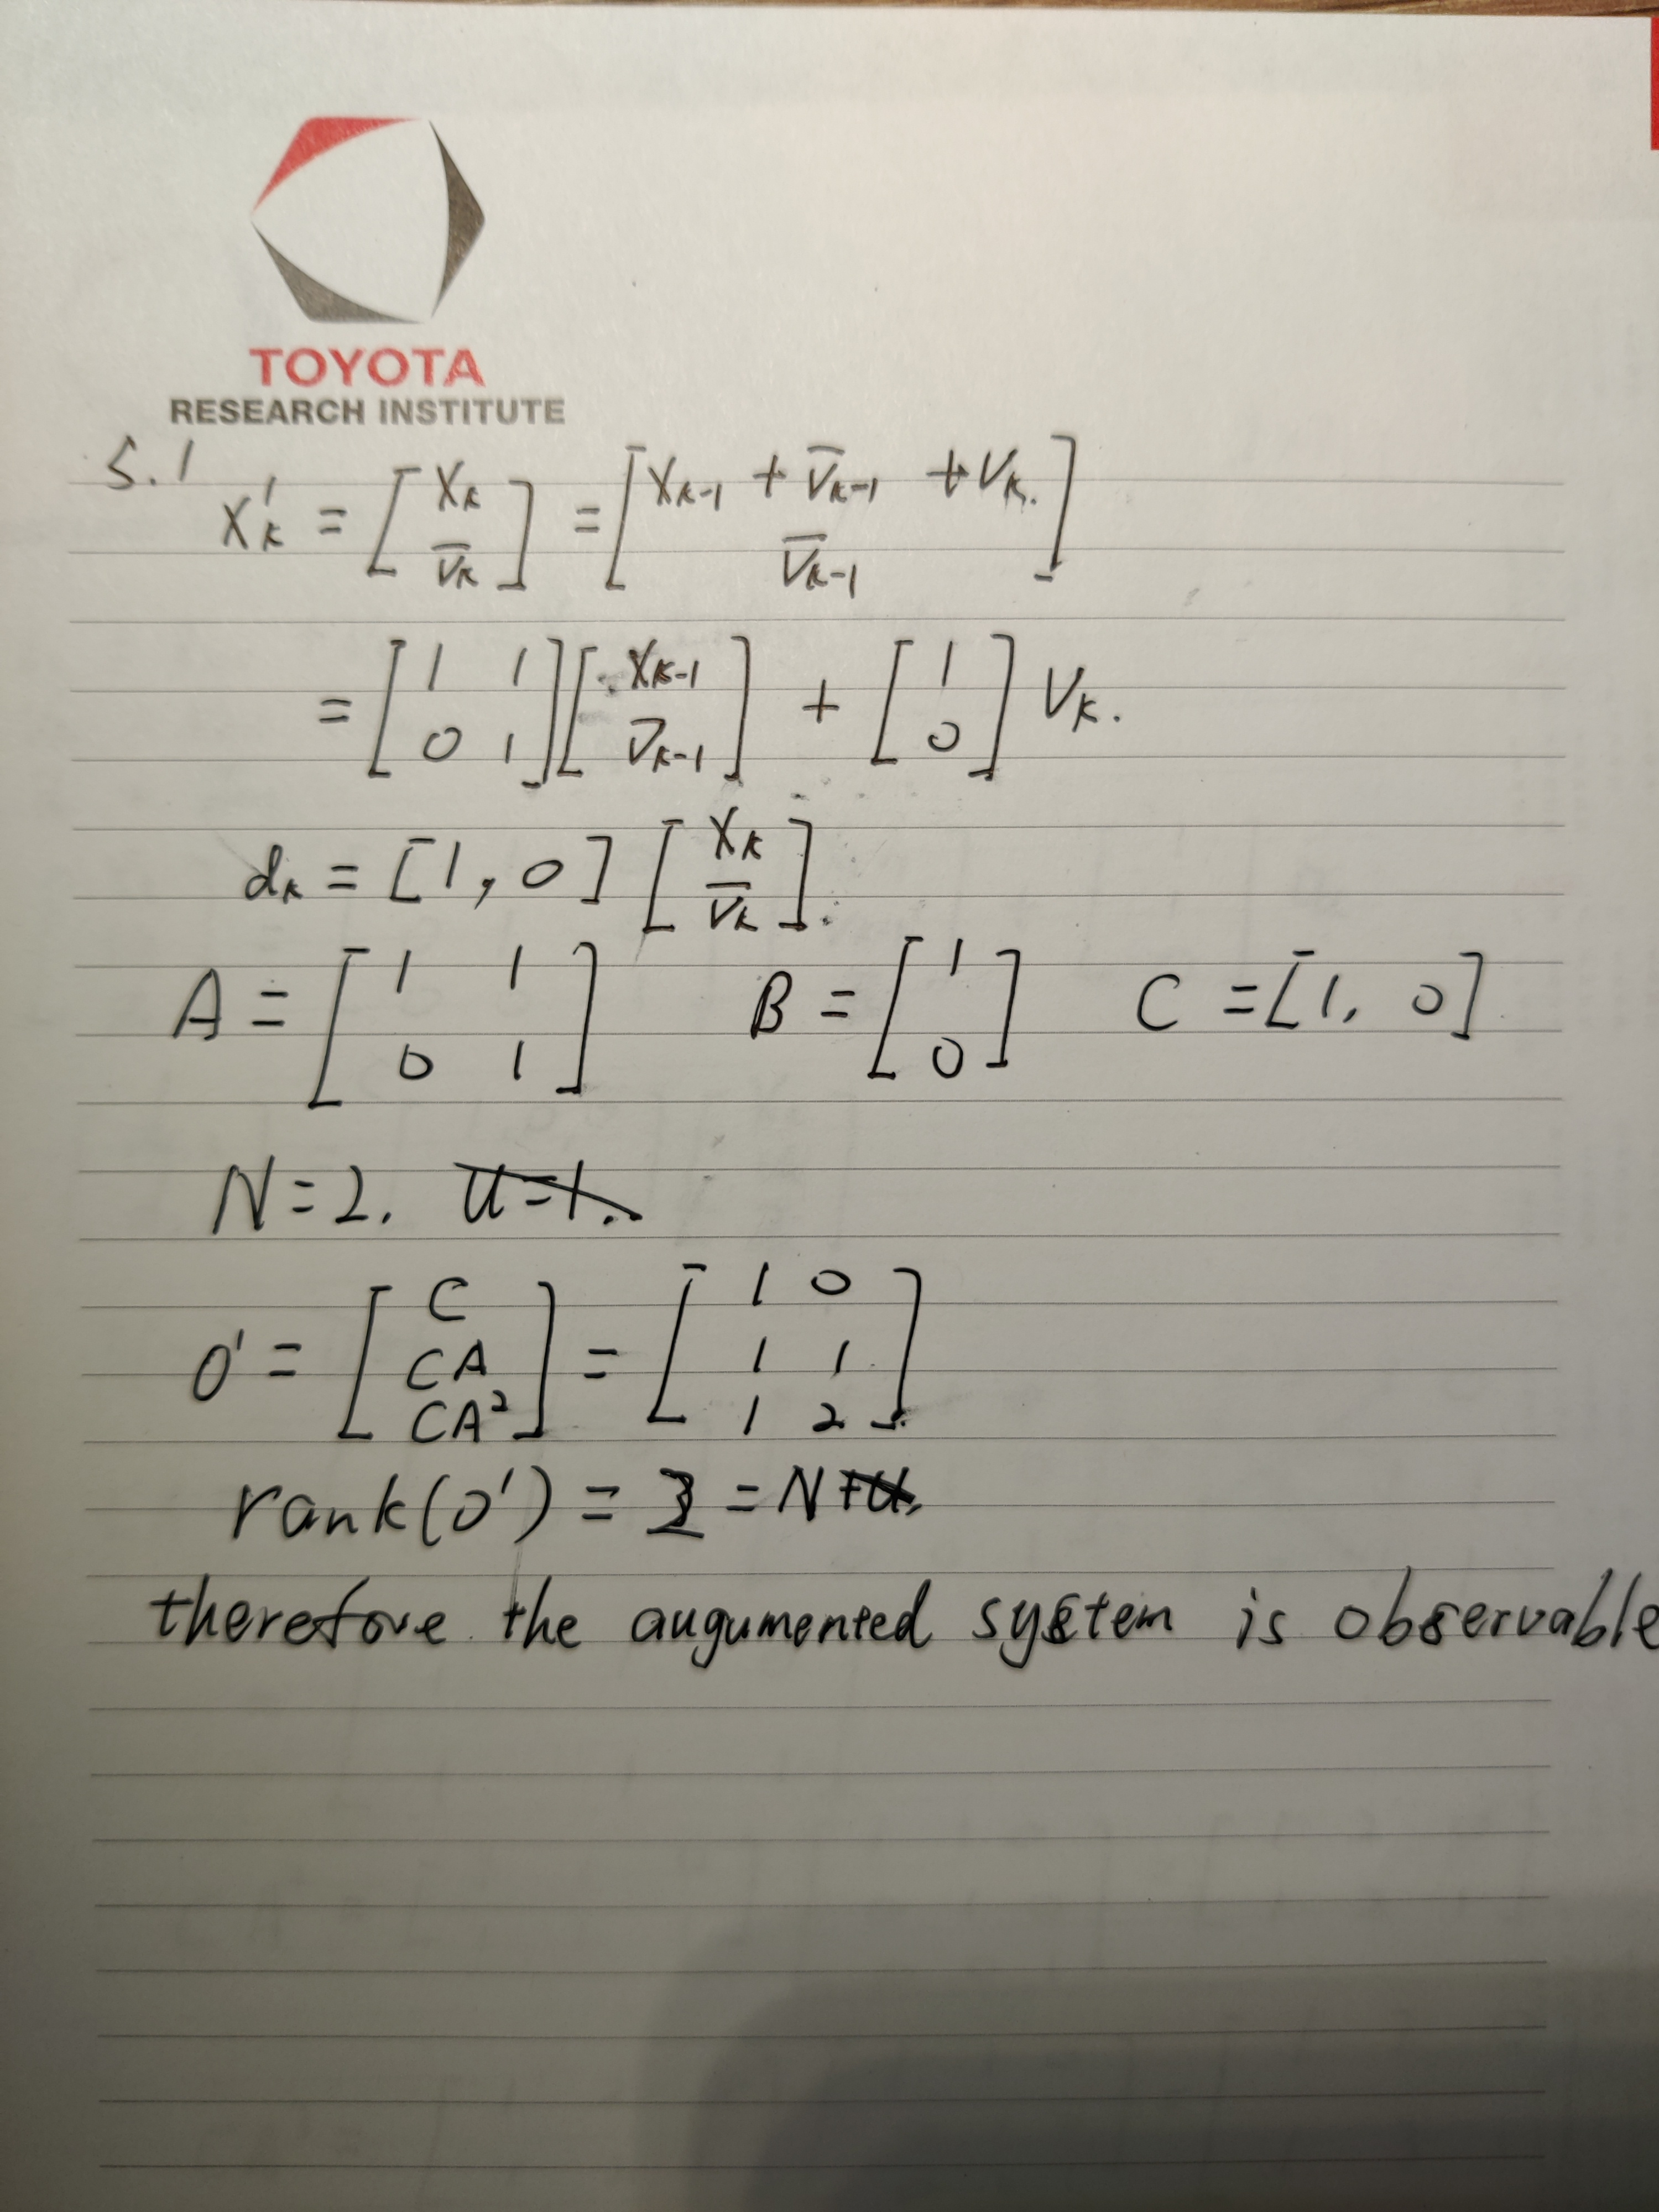 TOYOTA
RESEARCH INSTITUTE
5.1
X'ₖ = [Xₖ; V̄ₖ] = [Xₖ₋₁ + V̄ₖ₋₁ + Vₖ.; V̄ₖ₋₁]
= [1 1; 0 1][Xₖ₋₁; V̄ₖ₋₁] + [1; 0] Vₖ.
dₖ = [1, 0] [Xₖ; V̄ₖ].
A = [1 1; 0 1] B = [1; 0] C = [1, 0]
N = 2. U = 1.
O' = [C; CA; CA²] = [1 0; 1 1; 1 2].
rank(O') = 2 = N + U.
therefore the augumented system is observable